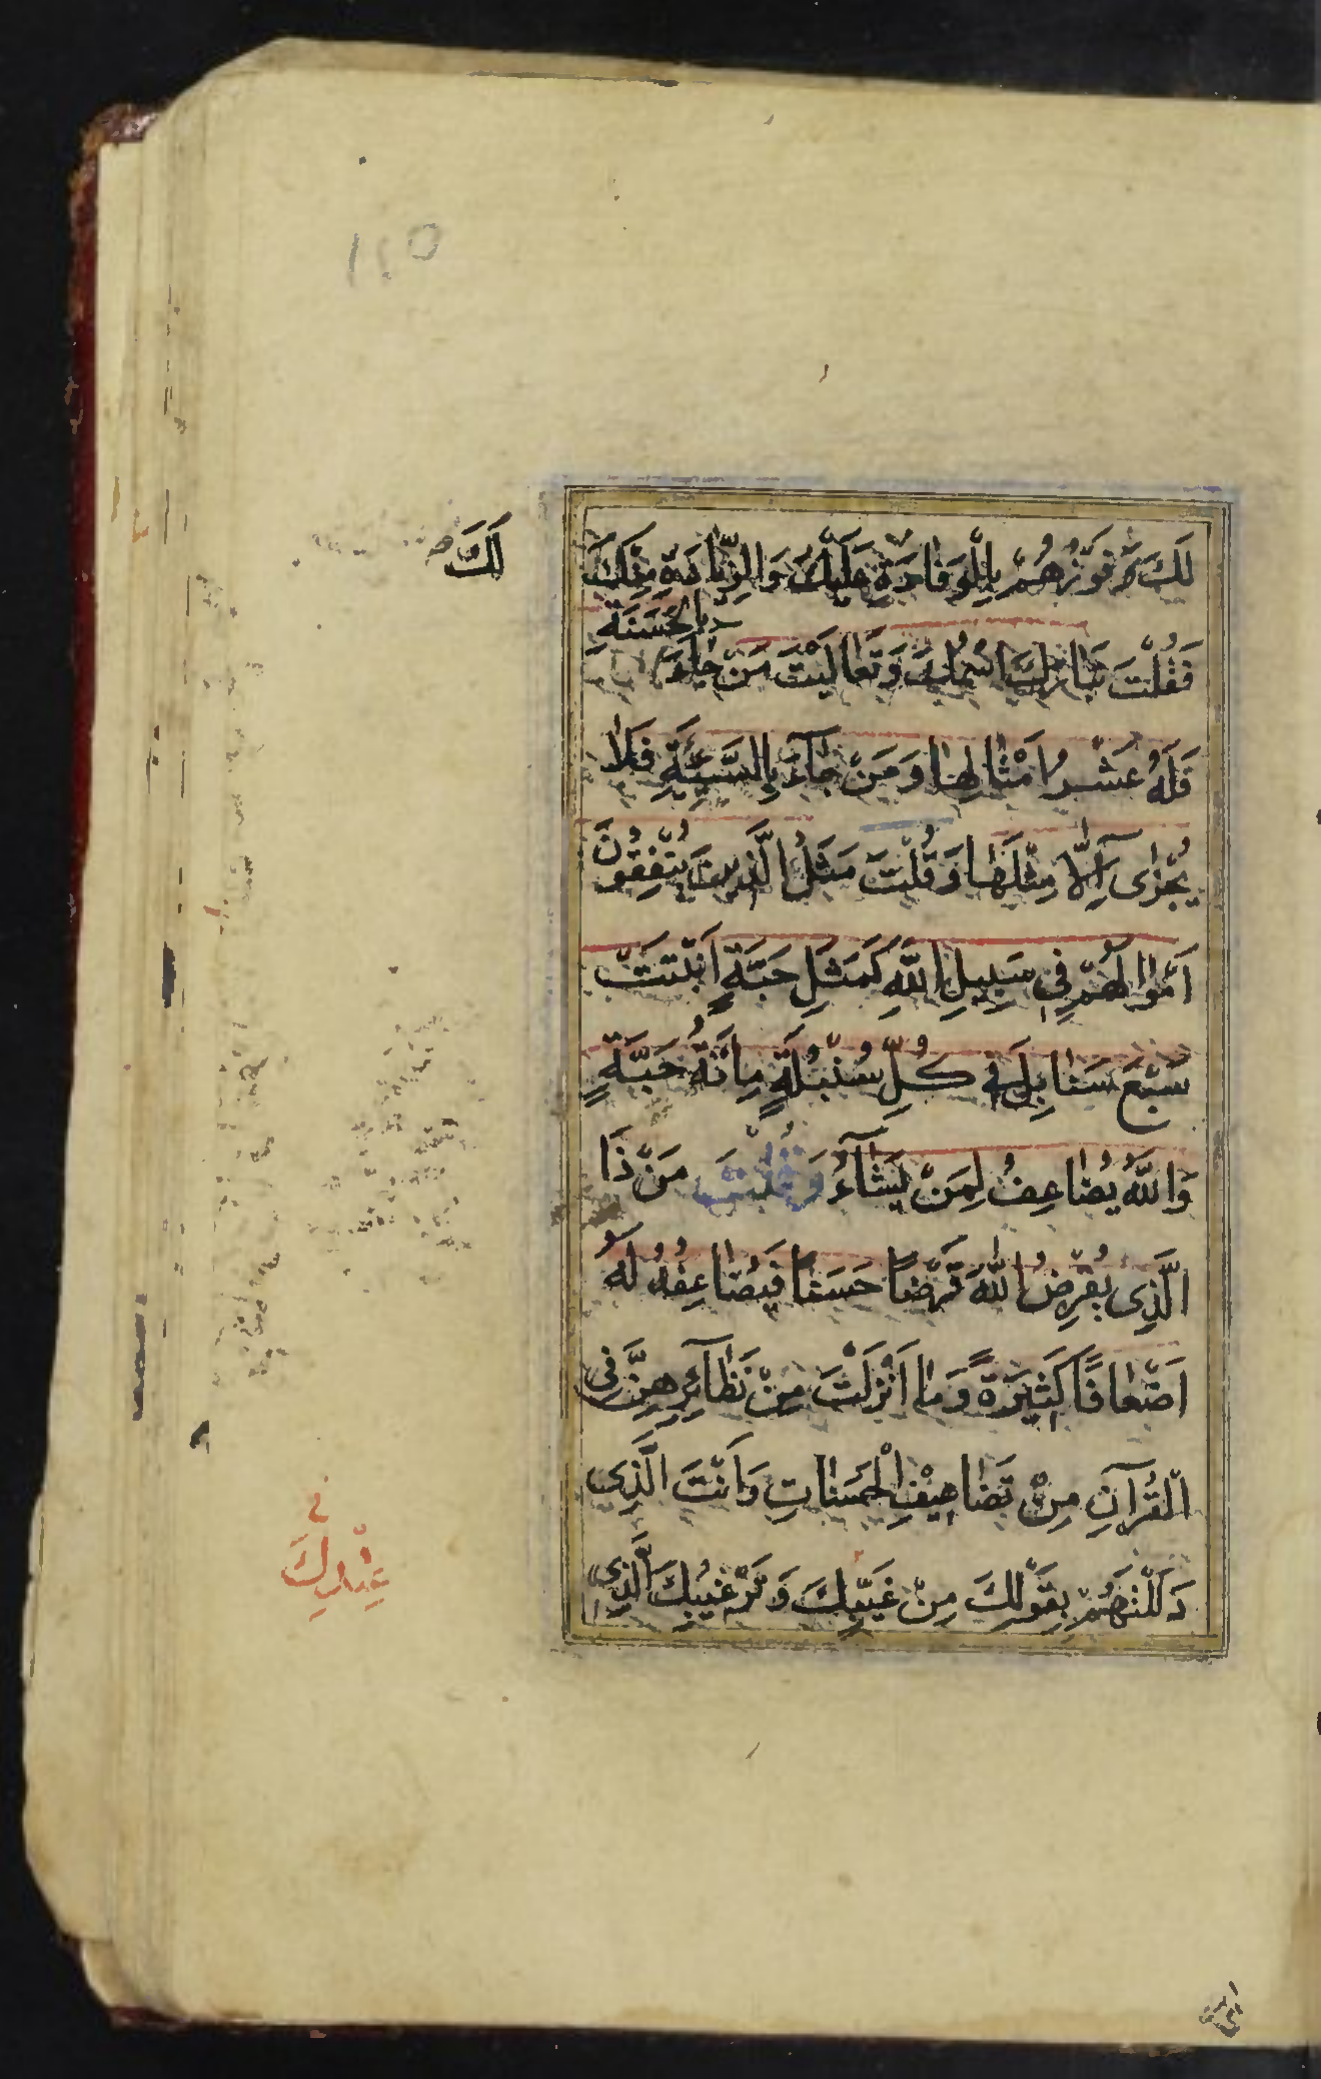 لَكَ وَفَوْزَهُمْ بِالْوَفَادَةِ عَلَيْكَ وَالزِّيَادَةِ مِنْكَ
فَقُلْتَ تَبَارَكَ اسْمُكَ وَتَعَالَيْتَ مَنْ جَاءَ بِالْحَسَنَةِ
فَلَهُ عَشْرُ اَمْثَالِهَا وَمَنْ جَآءَ بِالسَّيِّئَةِ فَلَا
يُجْزٰى اِلَّا مِثْلَهَا وَقُلْتَ مَثَلُ الَّذِينَ يُنْفِقُونَ
اَمْوَالَهُمْ فِي سَبِيلِ اللّٰهِ كَمَثَلِ حَبَّةٍ اَنْبَتَتْ
سَبْعَ سَنَابِلَ فِي كُلِّ سُنْبُلَةٍ مِائَةُ حَبَّةٍ
وَاللّٰهُ يُضَاعِفُ لِمَنْ يَشَآءُ وَقُلْتَ مَنْ ذَا
الَّذِي يُقْرِضُ اللّٰهَ قَرْضًا حَسَنًا فَيُضَاعِفَهُ لَهُ
اَضْعَافًا كَثِيرَةً وَمَا اَنْزَلْتَ مِنْ نَظَآئِرِهِنَّ فِي
الْقُرْآنِ مِنْ تَضَاعِيفِ الْحَسَنَاتِ وَاَنْتَ الَّذِي
دَلَلْتَهُمْ بِقَوْلِكَ مِنْ غَيْبِكَ وَتَرْغِيبِكَ الَّذِي
لَكَ